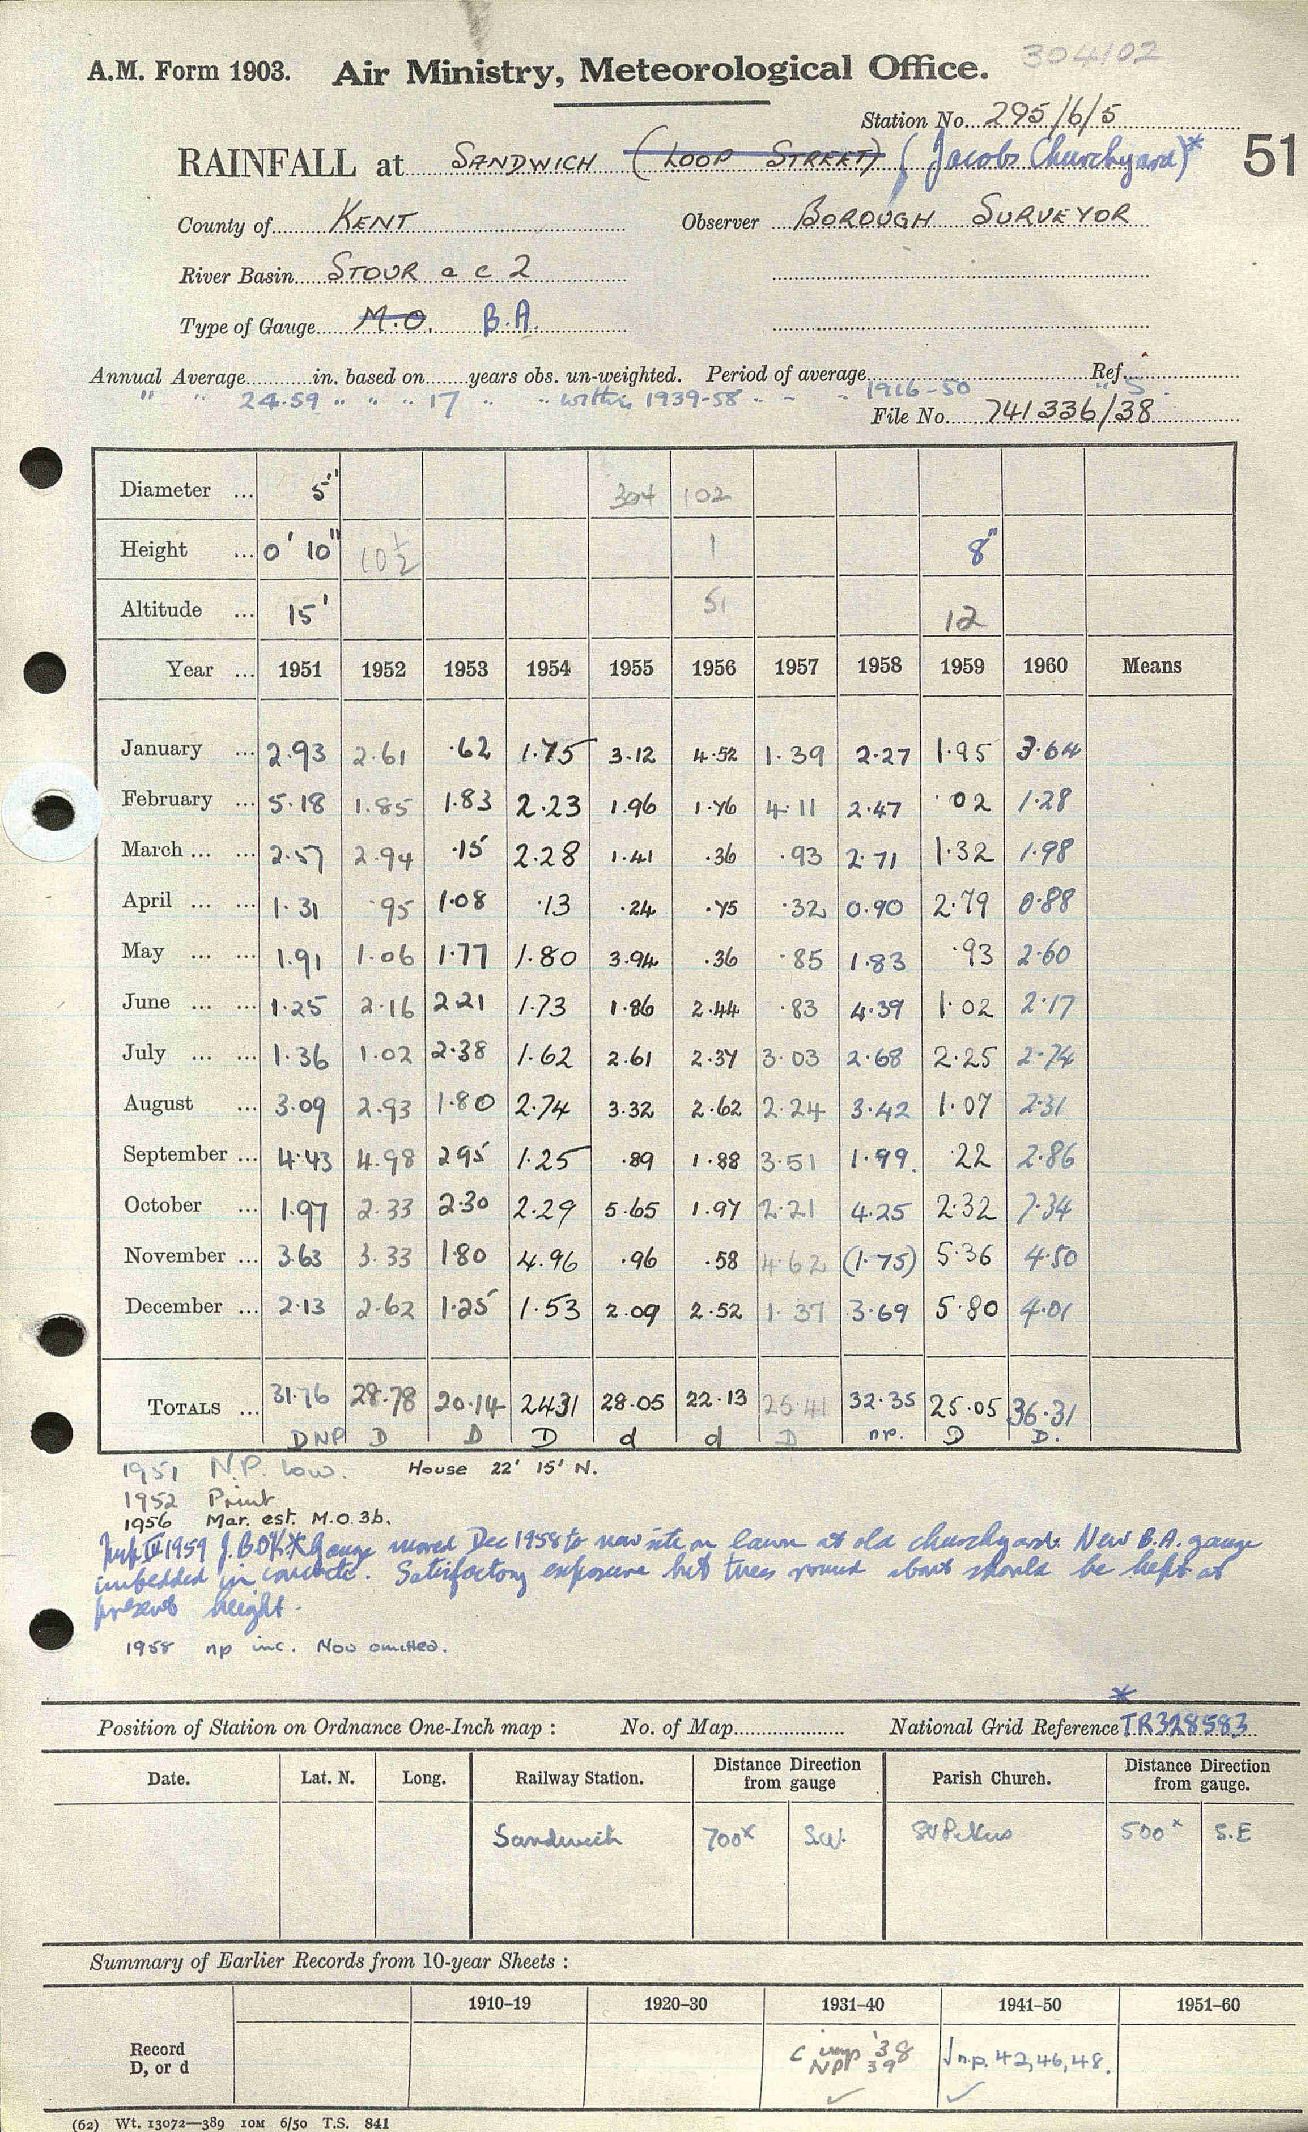 304102
A.M. Form 1903. Air Ministry, Meteorological Office.
Station No. 295/6/5
RAINFALL at SANDWICH (LOOP STREET) (Jacobs Churchyard)* 51
County of KENT Observer BOROUGH SURVEYOR
River Basin STOUR a c 2
Type of Gauge M.O. B.A.
Annual Average in. based on years obs. un-weighted. Period of average Ref.
" " 24.59 " " " 17 " " within 1939-58 " - " 1916-50 " 5.
File No. 741336/38
Diameter ... 5" 304 102
Height ... 0' 10" 10½ 1 8"
Altitude ... 15' 51 12
Year ... 1951 1952 1953 1954 1955 1956 1957 1958 1959 1960 Means
January ... 2.93 2.61 .62 1.75 3.12 4.52 1.39 2.27 1.95 3.64
February ... 5.18 1.85 1.83 2.23 1.96 1.76 4.11 2.47 .02 1.28
March ... ... 2.57 2.94 .15 2.28 1.41 .36 .93 2.71 1.32 1.98
April ... ... 1.31 .95 1.08 .13 .24 .75 .32 0.90 2.79 0.88
May ... ... 1.91 1.06 1.77 1.80 3.94 .36 .85 1.83 .93 2.60
June ... ... 1.25 2.16 2.21 1.73 1.86 2.44 .83 4.39 1.02 2.17
July ... ... 1.36 1.02 2.38 1.62 2.61 2.37 3.03 2.68 2.25 2.74
August ... 3.09 2.93 1.80 2.74 3.32 2.62 2.24 3.42 1.07 2.31
September ... 4.43 4.98 2.95 1.25 .89 1.88 3.51 1.99. .22 2.86
October ... 1.97 2.33 2.30 2.29 5.65 1.97 2.21 4.25 2.32 7.34
November ... 3.63 3.33 1.80 4.96 .96 .58 4.62 (1.75) 5.36 4.50
December ... 2.13 2.62 1.25 1.53 2.09 2.52 1.37 3.69 5.80 4.01
TOTALS ... 31.76 28.78 20.14 24.31 28.05 22.13 25.41 32.35 25.05 36.31
DNP D D D d d D np. D D.
1951 N.P. low. House 22' 15' N.
1952 Print
1956 Mar. est. M.O.3b.
Insp. III 1959 * Gauge moved Dec 1958 to new site on lawn at old churchyard. New B.A. gauge
imbedded in concrete. Satisfactory exposure but trees round about should be kept at
present height.
1958 np inc. Now omitted.
Position of Station on Ordnance One-Inch map : No. of Map National Grid Reference * TR328583
Date. Lat. N. Long. Railway Station. Distance Direction from gauge Parish Church. Distance Direction from gauge.
Sandwich 700x S.W. St Peters 500x S.E
Summary of Earlier Records from 10-year Sheets :
1910–19 1920–30 1931–40 1941–50 1951–60
Record D, or d
C insp '38
NP 39
√ n.p. 42, 46, 48.
(62) Wt. 13072—389 10M 6/50 T.S. 841